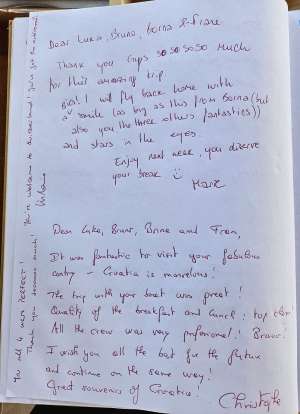 Dear Luka, Bruno, Borna & Frane
Thank you guys so so so so much
for this amazing trip
! I will fly back home with
a smile (as big as this from Borna (but
also you the three others fantastics))
and stars in the eyes
Enjoy next week, you deserve
your break
Marie
Dear Luka, Bruno, Borna and Fran,
It was fantastic to visit your fabulous
contry - Croatia is marvelous!
The trip with your boat was great!
Quality of the breakfast and lunch: top
All the crew was very professional! Bravo!
I wish you all the best for the future
and continue on the same way!
Great souvenir of Croatia!
Christophe
You all 4 were PERFECT!
Thank you soooooo much!
You're welcome to Switzerland